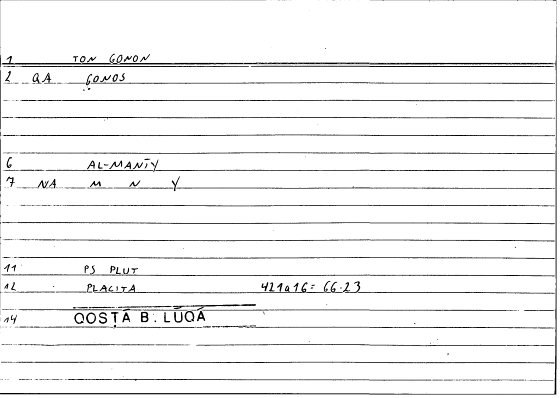 1 TON GONON
2 QA GONOS
6 AL-MANĪY
7 NA M N Y
11 PS PLUT
12 PLACITA 421a16 = 66.23
14 QOSṬĀ B. LŪQĀ